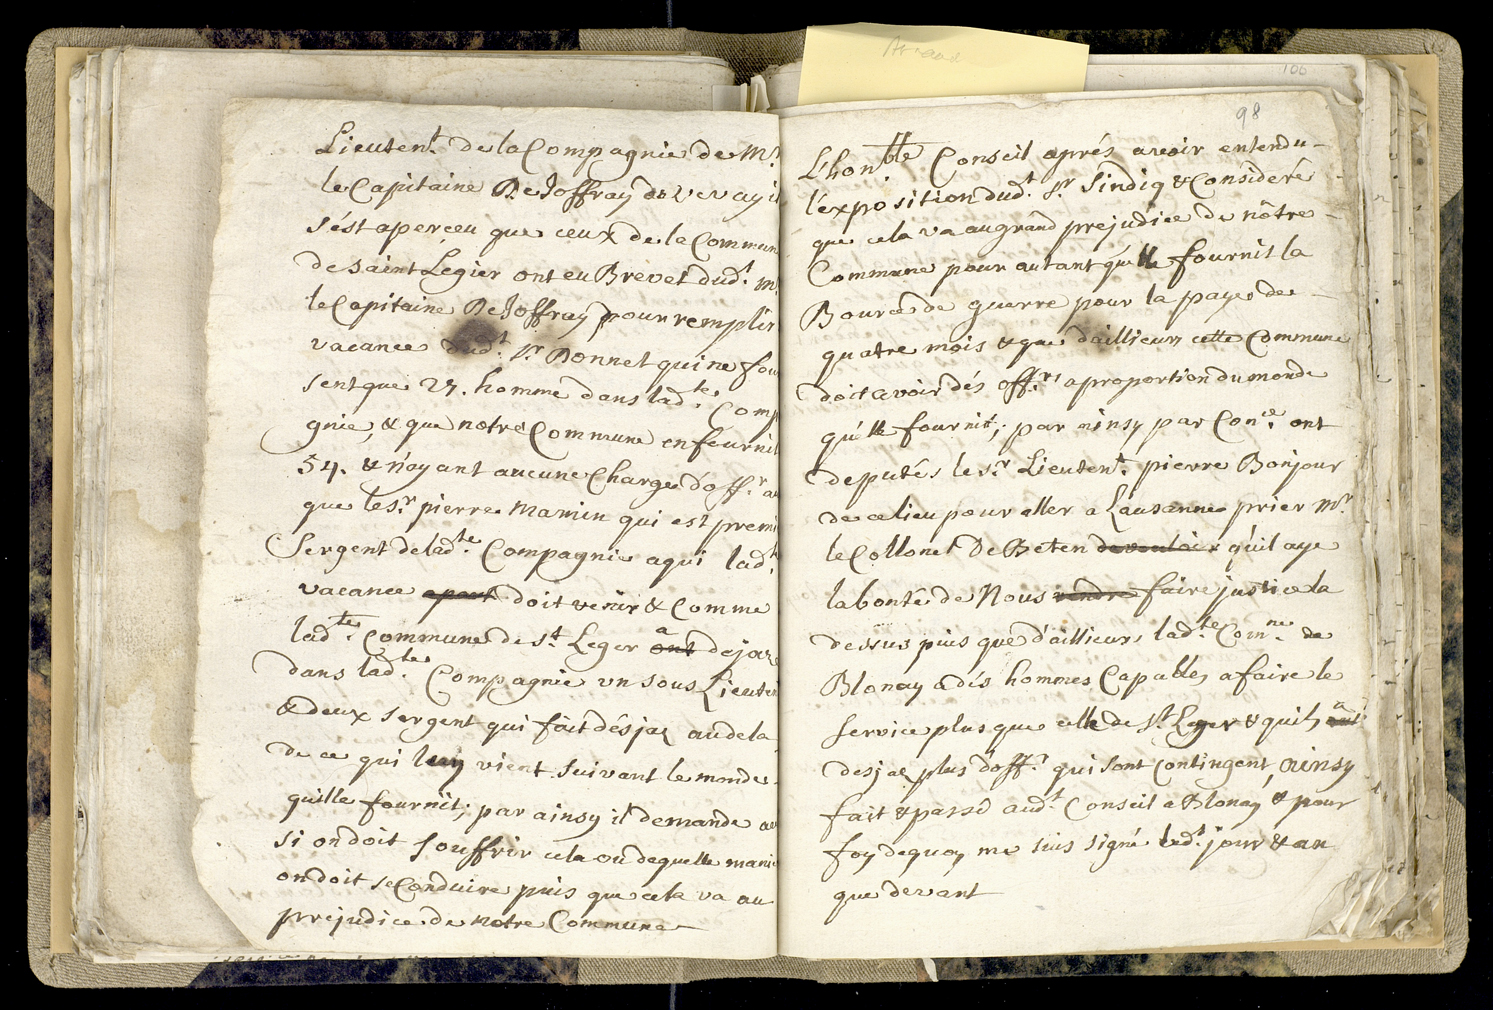 Lieuten.t de la Compagnie de Mr
le Capitaine De Joffray de Vevay il
s'ést aperçeu que ceux de la Commun
de Saint Legier ont eu Brevet dud.t m.r
le Capitaine De Joffray pour remplir
vacance dud.t s.r Bonnet qui ne four
sent que 27. homme dans lad.te Comp
gnie, & que notre Commune en fournit
54. & n'ayant aucune Charge d'off.r
que le s.r pierre Mamin qui est premi
Sergent de lad.te Compagnie a qui lad.te
vacance apart doit venir & Comme
lad.te Commune de s.t Leger ont a dejaz
dans lad.te Compagnie un sous Lieuten
& deux sergent qui fait désjaz audela
de ce qui leuy vient suivant le monde
quille fournit; par ainsy il demande
si on doit souffrir cela ou de quelle mani
on doit se Conduire puis que cela va au
prejudice de notre Commune
Avgaud
106
98
L'hon.ble Conseil aprés avoir entendu
l'exposition dud.t s.r Sindiq & Consideré
que cela va au grand prejudice de nôtre
Commune pour autant qu'elle fournit la
Bource de guerre pour la paye de
quatre mois & que d'aillieurs cette Commune
doit avoir dés off.rs a proportion du monde
qu'elle fournit; par ainsy par Con.ce ont
deputés le s.r Lieuten.t pierre Bonjour
de ce lieu pour aller a Lausanne prier M.r
le Collonel De Beten de vouloir qu'il aye
la bonté de Nous rendre faire justice la
dessus puis que d'aillieurs lad.te Com.ne de
Blonay a dés hommes Capables a faire le
service plus que celle de s.t Leger & quil ont a
desjaz plus d'off.r qui sont contingent, ainsy
fait & passé aud.t Conseil a Blonay & pour
foy dequoy me suis signé led.t jour & an
que devant